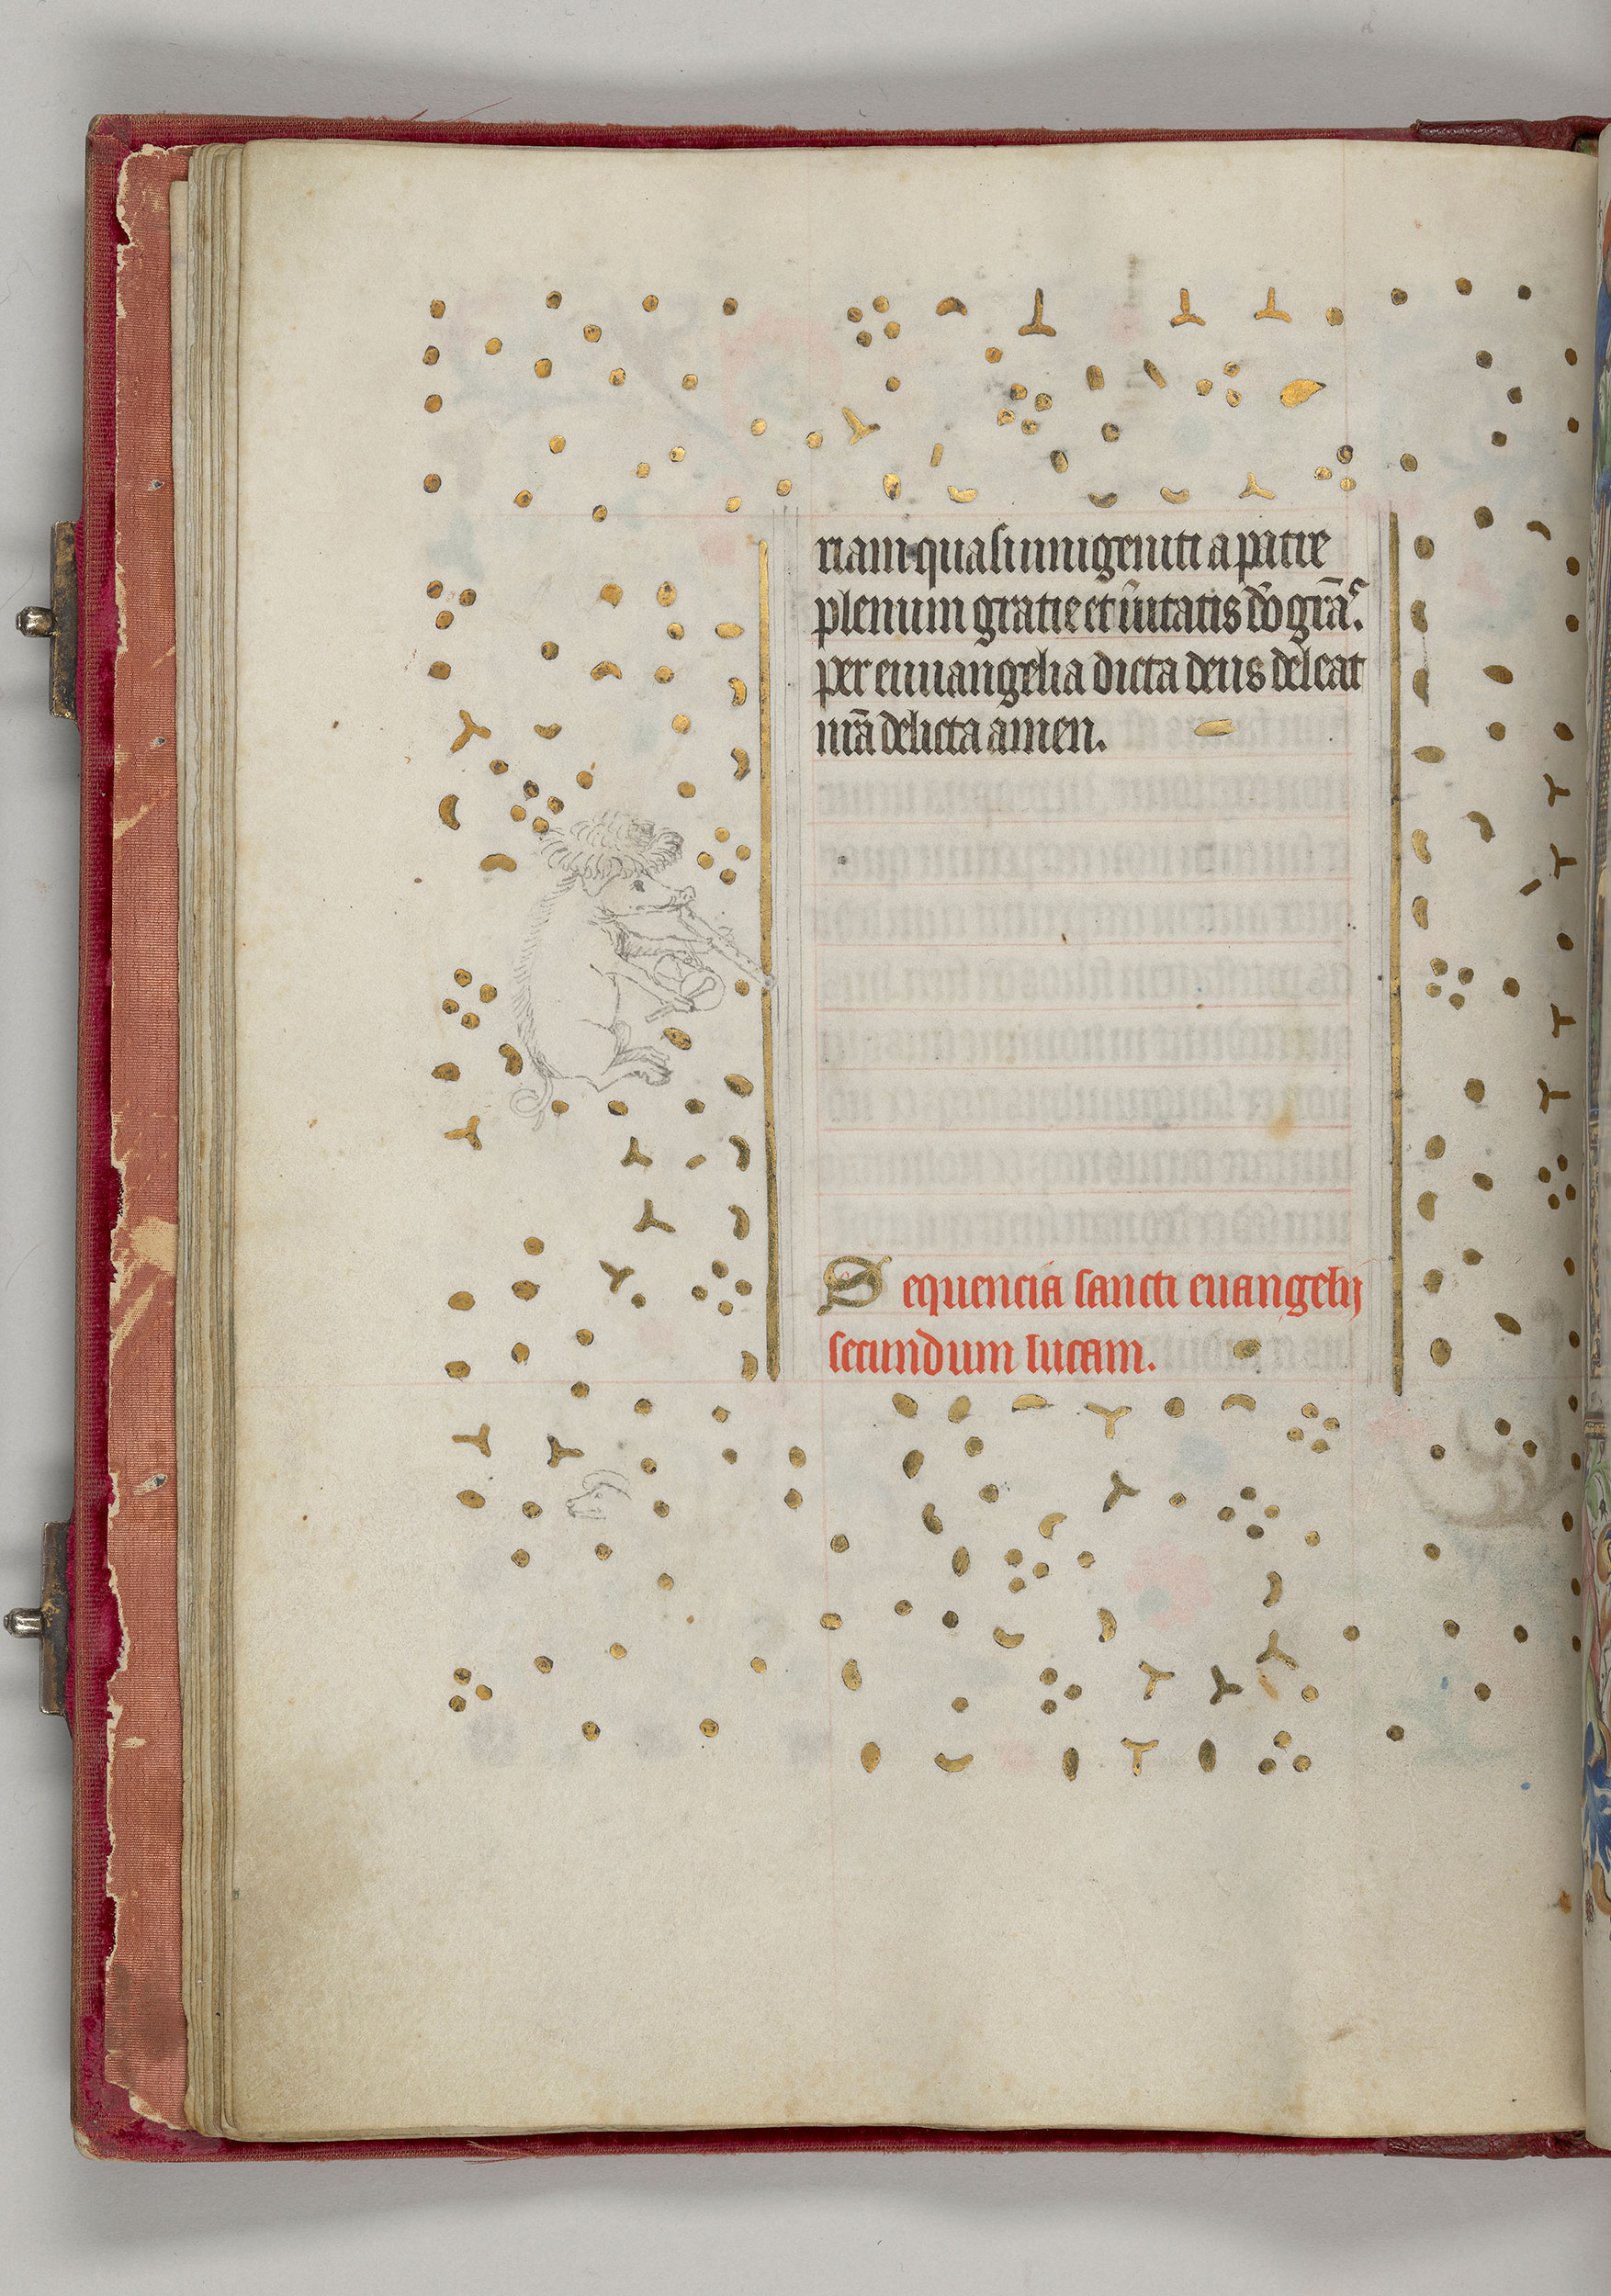 riam quasi unigeniti a patre
plenum gratie et v̄itatis dō grā.ͨ
per euuangelia dicta deus deleat
nr̄a delicta amen.
Sequencia sancti euangelij
secundum lucam.